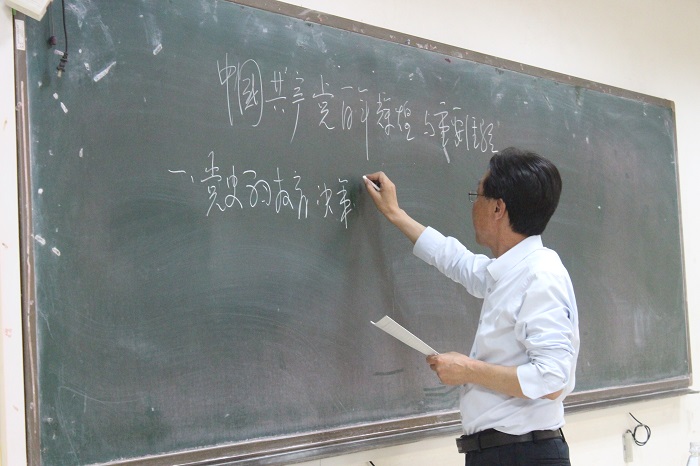 中國共产党百年辉煌与重要经验
一、党史的教育决策